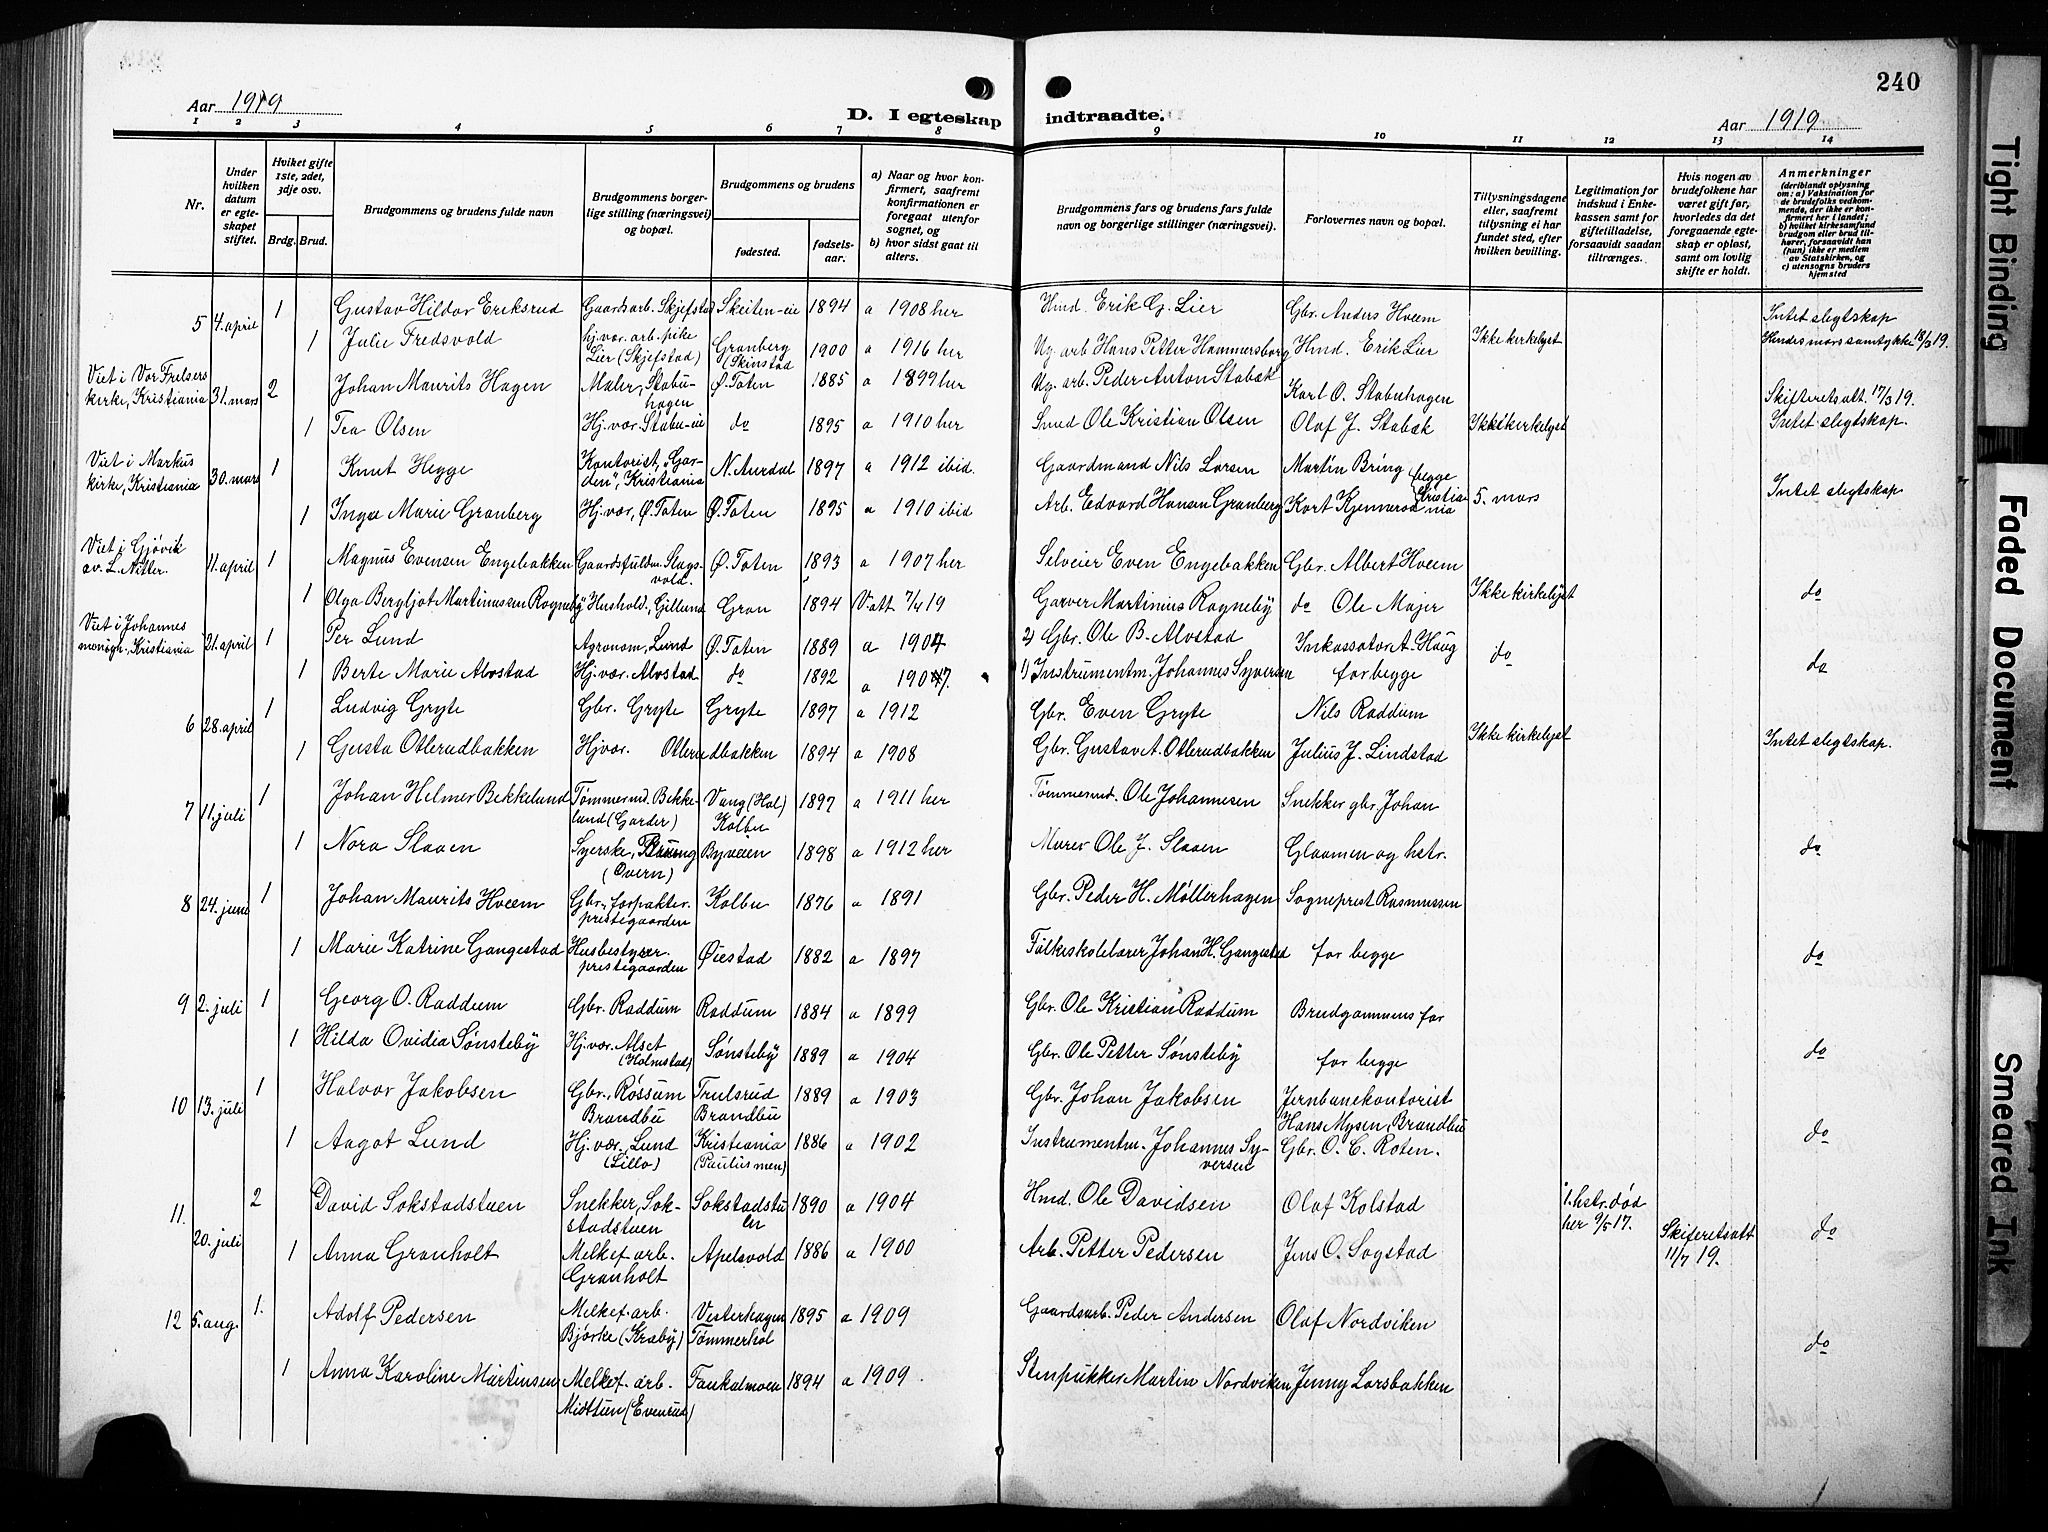 240
Aar 1919
D. I egteskap indtraadte.
Aar 1919
1 2 3 4 5 6 7 8 9 10 11 12 13 14
Nr.
Under hvilken datum er egteskapet stiftet.
Hviket gifte 1ste, 2det, 3dje osv.
Brdg. Brud.
Brudgommens og brudens fulde navn
Brudgommens borgerlige stilling (næringsvei) og bopæl.
Brudgommens og brudens
fødested. fødselsaar.
a) Naar og hvor konfirmert, saafremt konfirmationen er foregaat utenfor sognet, og
b) hvor sidst gaat til alters.
Brudgommens fars og brudens fars fulde navn og borgerlige stillinger (næringsvei).
Forlovernes navn og bopæl.
Tillysningsdagene eller, saafremt tillysning ei har fundet sted, efter hvilken bevilling.
Legitimation for indskud i Enkekassen samt for giftetilladelse, forsaavidt saadan tiltrænges.
Hvis nogen av brudefolkene har været gift før, hvorledes da det foregaaende egteskap er opløst, samt om lovlig skifte er holdt.
Anmerkninger
(deriblandt oplysning om: a) Vaksination for de brudefolks vedkommende, der ikke er konfirmert her i landet; b) hvilket kirkesamfund brudgom eller brud tilhører, forsaavidt han (hun) ikke er medlem av Statskirken, og c) utensogns bruders hjemsted
5 4. april 1 Gustav Hildor Eriksrud Gaardsarb. Skjefstad Skeiten-eie 1894 a 1908 her Hmd. Erik G. Lier Gbr. Anders Hveem Intet slegtskap
1 Julie Fredsvold hj.vær. arb. pike Lier (Skjefstad) Granberg (Skinstad 1900 a 1916 her Ug. arb Hans Petter Hammersborg Hmd. Erik Lier Ikke kirkelyst Hendes mors samtykke 18/3 19.
Viet i Vor Frelsers kirke, Kristiania 31. mars 2 Johan Maurits Hagen Maler, Stabuhagen Ø. Toten 1885 a 1899 her Ug. arb. Peder Anton Stabæk Karl O. Stabuhagen Skifteretsatt. 17/3 19.
1 Tea Olsen Hj. vær. Stabu-eie do 1895 a 1910 her Smed Ole Kristian Olsen Olaf J. Stabæk Ikke kirkelyst Intet slegtskap.
Viet i Markus kirke, Kristiania 30. mars 1 Knut Hegge Kontorist, "Garden", Kristiania N. Aurdal 1897 a 1912 ibid. Gaardmand Nils Larsen Martin Bring begge
1 Inga Marie Granberg Hj. vær, Ø. Toten Ø. Toten 1895 a 1910 ibid Arb. Edvard Hansen Granberg Kart Kjennerød Kristiania 5. mars Intet slegtskap
Viet i Gjøvik av. L. Nitter. 11. april 1 Magnus Evensen Engebakken Gaardsfuldm. Slagsvold. Ø. Toten 1893 a 1907 her Selveier Even Engebakken Gbr. Albert Hveem
1 Olga Bergljot Martinussen Rogneby Hushold., Gillund Gran 1894 V. att 7/4 19 Garver Martinius Rogneby do Ole Majer Ikke kirkelyst do
Viet i Johannes menigh., Kristiania 21. april 1 Per Lund Agronom, Lund Ø. Toten 1889 a 1904 2) Gbr. Ole B. Alvstad Inkassator A. Haug do
1 Berte Marie Alvstad Hj. vær. Alvstad do 1892 a 1907. 1) Instrumentm. Johannes Syversen for begge do
6 28. april 1 Ludvig Gryte Gbr. Gryte Gryte 1897 a 1912 Gbr. Even Gryte Nils Raddum
1 Gusta Otterudbakken Hj vær. Otterudbakken 1894 a 1908 Gbr. Gustav A. Otterudbakken Julius J. Lindstad Ikke kirkelyst Intet slegtskap.
7 11. juli 1 Johan Helmer Bekkelund Tømmermd. Bekkelund (Garder) Vang (Hal) Kolbu 1897 a 1911 her Tømmermd. Ole Johannesen Snekker gbr. Johan
1 Nora Slaaen Syerske, (Overn) Byveien 1898 a 1912 her Murer Ole J. Slaaen Glaamen og hstr. do
8 24. juni 1 Johan Maurits Hveem Gbr., forpakter. prestegaarden Kolbu 1876 a 1891 Gbr. Peder H. Møllerhagen Sogneprest Rasmussen
1 Marie Katrine Gangestad Husbestyrer. prestegaarden Øiestad 1882 a 1897 Folkeskolelærer Johan H. Gangestad for begge do
9 2. juli 1 Georg O. Raddum Gbr. Raddum Raddum 1884 a 1899 Gbr. Ole Kristian Raddum Brudgommens far
1 Hilda Ovidia Sønsteby Hj. vær. Alset (Holmstad) Sønsteby 1889 a 1904 Gbr. Ole Petter Sønsteby for begge do
10 13. juli 1 Halvor Jakobsen Gbr., Røssum Brandbu Trulsrud Brandbu 1889 a 1903 Gbr. Johan Jakobsen Jernbanekontorist Hans Mysen, Brandbu
1 Aagot Lund Hj. vær., Lund (Lillo) Kristiania (Paulus men) 1886 a 1902 Instrumentm. Johannes Syversen Gbr. O. C. Roten. do
11. 20. juli 2 David Sokstadstuen Snekker, Sokstadstuen Sokstadstuen 1890 a 1904 Hmd. Ole Davidsen Olaf Kolstad 1. hstr. død her 9/5 17. Skifteretsatt 11/7 19. do
1 Anna Granholt Melkef. arb. Granholt Apelsvold 1886 a 1900 Arb. Petter Pedersen Jens O. Sogstad
12 5. aug. 1. Adolf Pedersen Melkef. arb. Bjørke (Kraby) Vesterhagen Tømmerhol 1895 a 1909 Gaardsarb. Peder Andersen Olaf Nordviken do
1 Anna Karoline Martinsen Melkef. arb. Midtuen (Evenrud) Faukalmoen 1894 a 1909. Stenpukker Martin Nordviken Jenny Larsbakken
Tight Binding
Faded Document
Smeared Ink